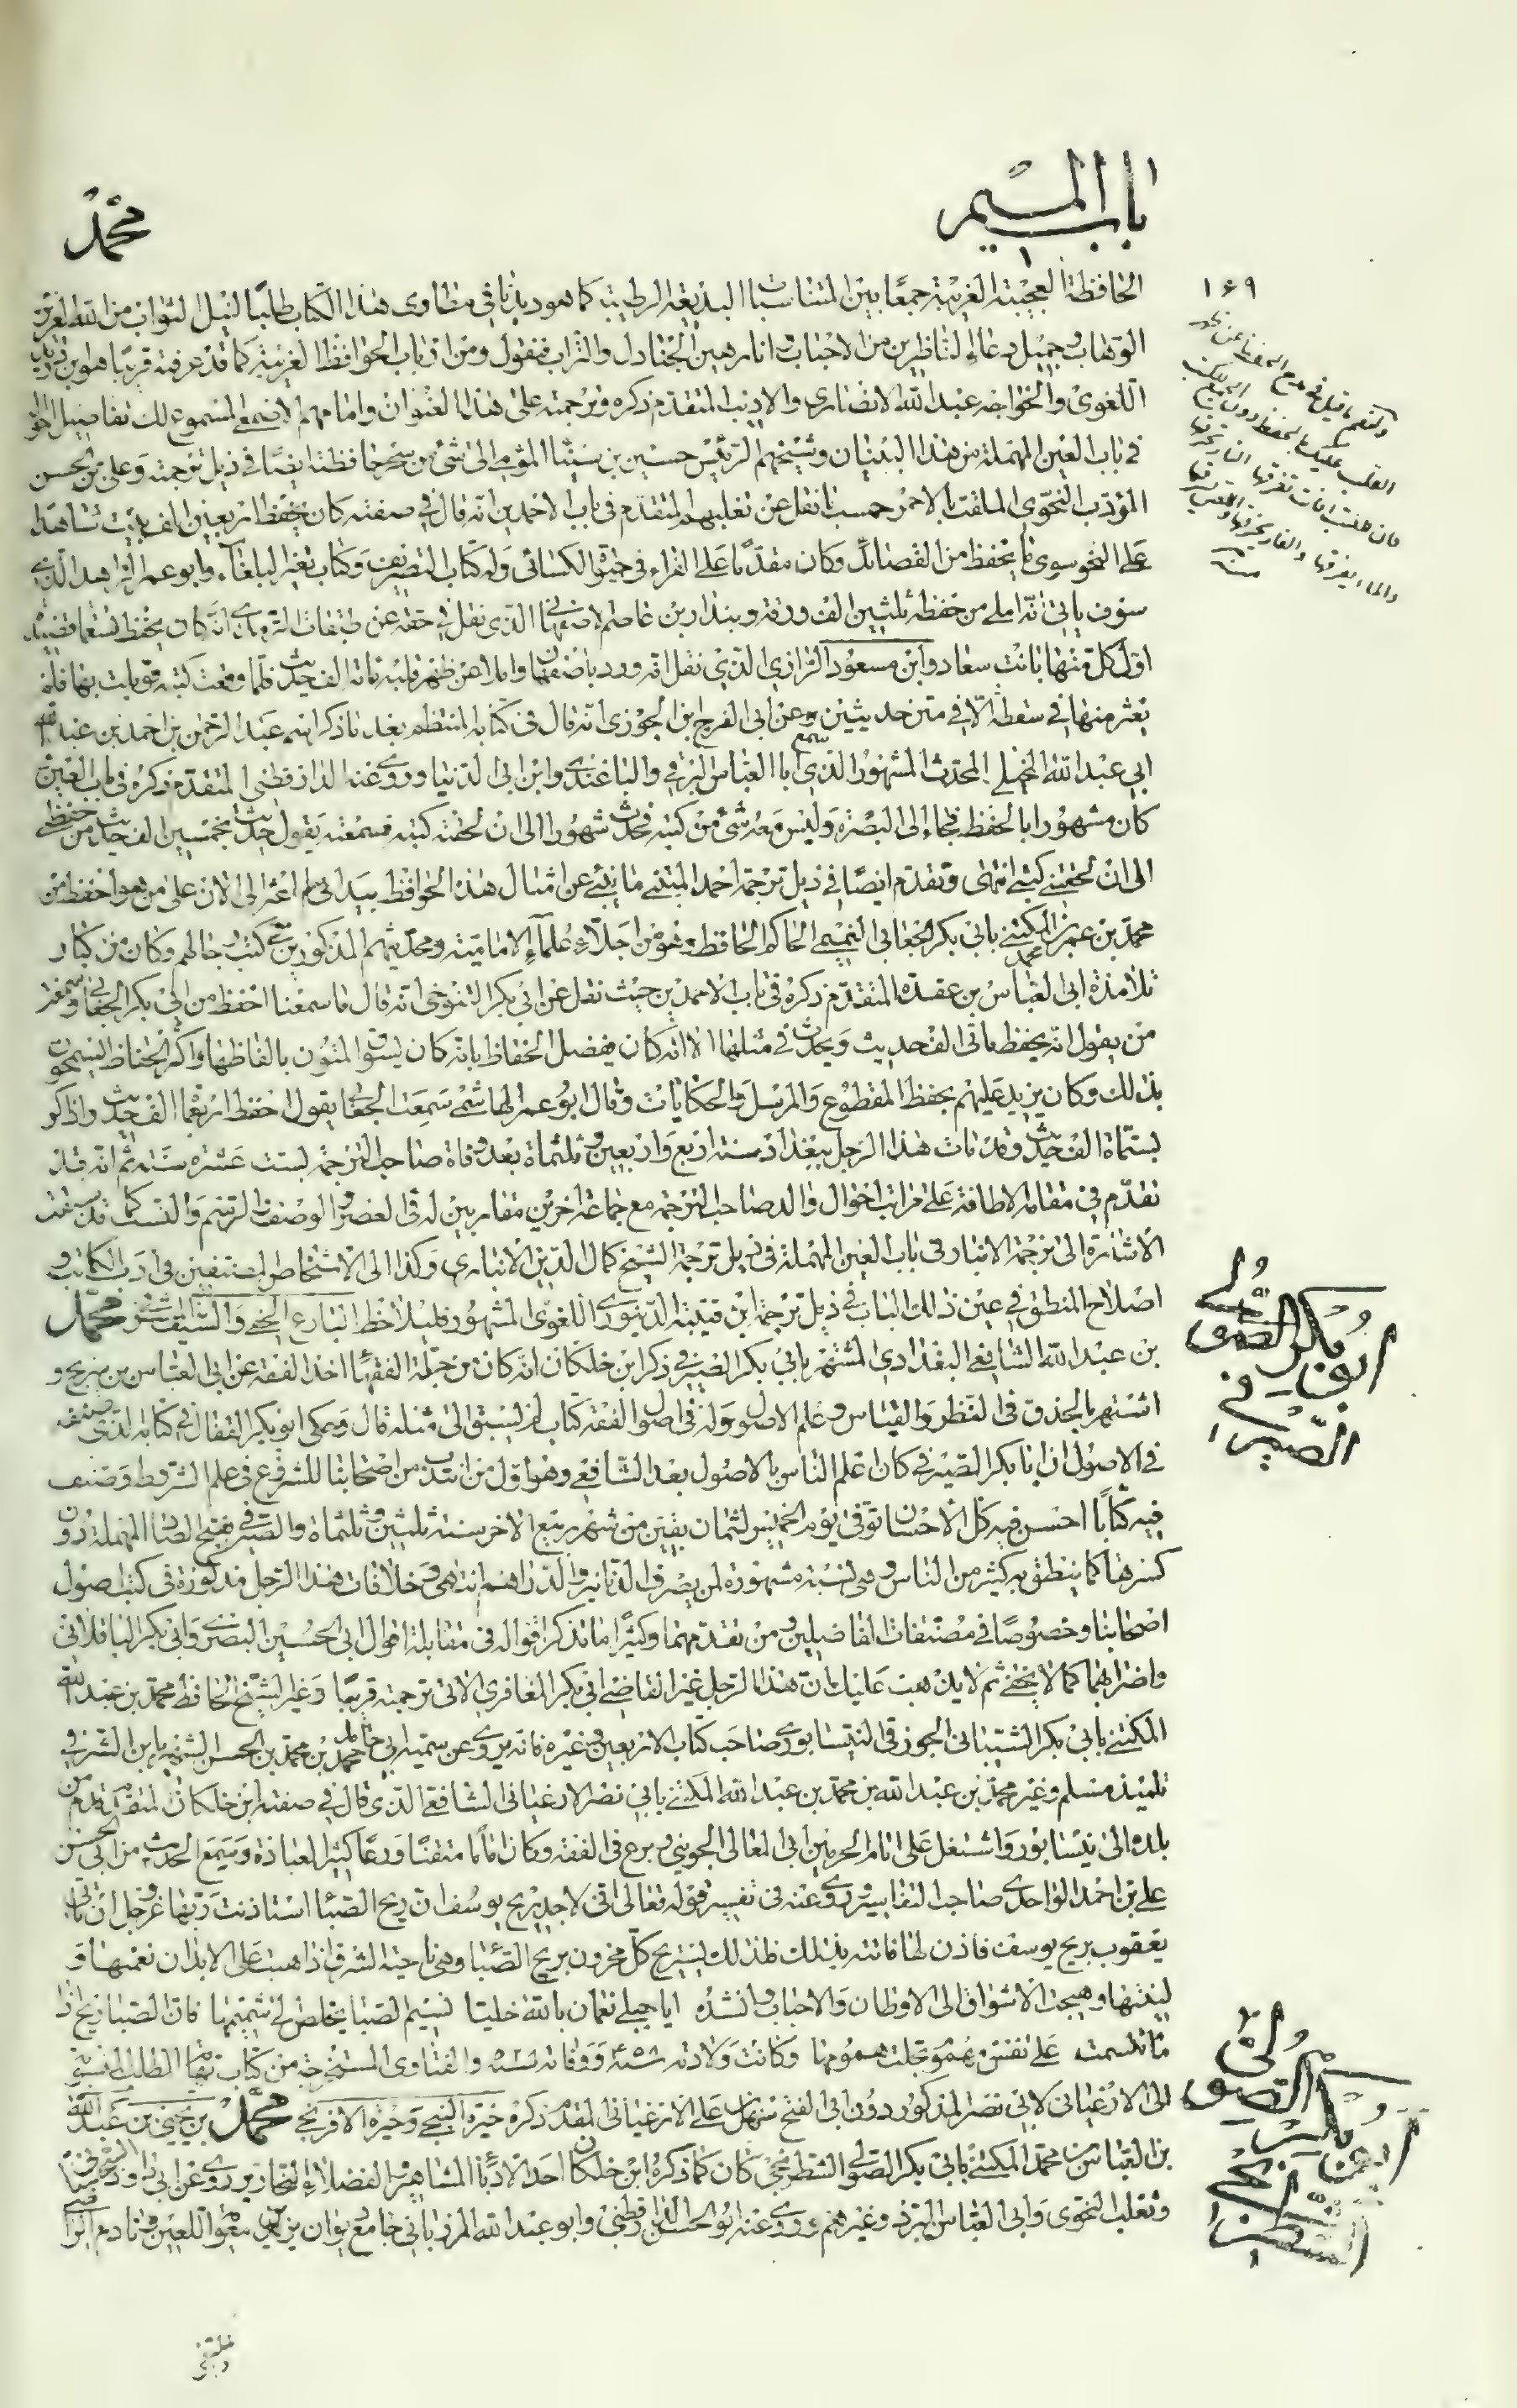 باب الميم
محمد
١٦٩
الحافظة العجيبة الغريبة جمعا بين المتناسبات البديعة الرطيبة كما هو ديدننا في مطاوى هذا الكتاب طلبا لنيل الثواب من الله العزيز
الوهاب وجميل دعاء الناظرين من الاحباب وانا رهين الجنادل والتراب فنقول ومن ارباب الحوافظ الغريبة كما قد عرفته قريبا هو ابن دريد
اللغوى والخواجه عبد الله الانصارى والاديب المتقدم ذكره وترجمته على هذا العنوان وامامهم الاصمعى المسموع لك تفاصيل احواله
في باب العين المهملة من هذا البنيان وشيخهم الرئيس حسين بن سينا المومى الى شئ من حافظته ايضا في ذيل ترجمته وعلى بن الحسن
المؤدب النحوى الملقب بالاحمر حسب ما نقل عن ثعلبهم المتقدم في باب الاحمدين انه قال في صفته كان يحفظ اربعين الف بيت شاهدا
على النحو سوى ما يحفظ من القصائد وكان مقدما على الفراء في حيوة الكسائى وله كتاب التصريف وكتاب تفنن البلغاء وابو عمر الزاهد الذى
سوف ياتى انه املى من حفظه ثلثين الف ورقة وبندار بن عاصم الاصفهانى الذى نقل في حقه عن طبقات انه كان يحفظ تسعمائة قصيدة
اول كل منها بانت سعاد وابن مسعود الرازى الذى نقل انه ورد باصفهان واملا عن ظهر قلبه مائة الف حديث فلما وقعت كتبه قوبلت بها فلم
يعثر منها في سقطة الا في متن حديثين وعن ابى الفرج ابن الجوزى انه قال في كتابه المنتظم بعد ما ذكر اسم عبد الرحمن بن احمد بن عبد الله
ابي عبد الله الختلى المحدث المشهور الذى سمع ابا العباس البرتى والباغندى وابن ابى الدنيا وروى عنه الدارقطنى المتقدم ذكره في باب العين
كان مشهورا بالحفظ فجاء الى البصرة وليس معه شئ من كتبه فحدث شهورا الى ان لحقته كتبه فسمعته يقول حدثت بخمسين الف حديث من حفظى
الى ان لحقتنى كتبى انتهى وتقدم ايضا في ذيل ترجمة احمد المتنبى ما ينبئ عن امثال هذه الحوافظ بيد انى لم اعثر الى الان على من هو احفظ من
محمد بن عمر بن محمد المكنى بابى بكر الجعابى التميمى الحاكم الحافظ وهو من اجلاء علماء الامامية ومحدثيهم المذكورين في كتب رجالهم وكان من كبار
تلامذة ابى العباس بن عقدة المتقدم ذكره في باب الاحمدين حيث نقل عن ابى بكر التنوخى انه قال ما سمعنا احفظ من ابى بكر الجعابى وسمعت
من يقول انه يحفظ مائتى الف حديث ويحدث في مثلها الا انه كان يفضل الحفاظ بانه كان يسوق المتون بالفاظها واكثر الحفاظ يتسمحون
بذلك وكان يزيد عليهم بحفظ المقطوع والمرسل والحكايات وقال ابو عمر الهاشمى سمعت الجعابى يقول احفظ اربعمائة الف حديث واذاكر
بستمائة الف حديث وقد مات هذا الرجل ببغداد سنة اربع واربعين وثلثمائة بعد وفاة صاحب الترجمة بست عشرة سنة ثم انه قد
تقدم في مقام الاطافة على مراتب احوال والد صاحب الترجمة مع جماعة اخرين مقاربين له في العصر والوصف والرسم والنسب كما قد سبقت
الاشارة الى ترجمة الانبار في باب العين المهملة في ذيل ترجمة الشيخ كمال الدين الانبارى وكذا الى الاشخاص المصنفين في ادب الكاتب و
اصلاح المنطق في عين ذلك الباب في ذيل ترجمة ابن قتيبة الدينورى اللغوى المشهور فليلاحظ محمد
بن عبد الله الشافعى البغدادى المشتهر بابى بكر الصيرفى ذكر ابن خلكان انه كان من جملة الفقهاء اخذ الفقه عن ابى العباس بن سريج و
اشتهر بالحذق في النظر والقياس وعلم الاصول وله في اصول الفقه كتاب لم يسبق الى مثله قال وحكى ابو بكر القفال في كتابه الذى صنفه
في الاصول ان ابا بكر الصيرفى كان اعلم الناس بالاصول بعد الشافعى وهو اول من انتدب من اصحابنا للشروع في علم الشروط وصنف
فيه كتابا احسن فيه كل الاحسان توفى يوم الخميس لثمان بقين من شهر ربيع الاخر سنة ثلثين وثلثمائة والصيرفى بفتح الصاد المهملة دون
كسرها كما ينطق به كثير من الناس وهى نسبة مشهورة لمن يصرف الدنانير والدراهم انتهى وخلافات هذا الرجل مذكورة في كتب اصول
اصحابنا وخصوصا في مصنفات الفاضلين ومن تقدمهما وكثيرا ما تذكر اقواله في مقابلة اقوال ابى الحسين البصرى وابى بكر الباقلانى
واضرابهما كما لا يخفى ثم لا يذهب عليك ان هذا الرجل غير القاضى ابى بكر المعافرى الاتى ترجمته قريبا وغير الشيخ الحافظ محمد بن عبد الله
المكنى بابى بكر الشيبانى الجوزقى النيسابورى صاحب كتاب الاربعين وغيره فانه يروى عن سميه ابى حامد احمد بن محمد بن الحسن الشهير بابن الشرقى
تلميذ مسلم وغير محمد بن عبد الله بن محمد بن عبد الله المكنى بابى نصر الارغيانى الشافعى الذى قال في صفته ابن خلكان المتقدم قدم من
بلده الى نيسابور واشتغل على امام الحرمين ابى المعالى الجوينى وبرع في الفقه وكان اماما متقنا ورعا كثير العبادة وسمع الحديث من ابى الحسن
على بن احمد الواحدى صاحب التفاسير وروى عنه في تفسير قوله تعالى انى لاجد ريح يوسف ان ريح الصبا استاذنت ربها عز وجل ان تاتى
يعقوب بريح يوسف فاذن لها فاتته بذلك فلذلك يستريح كل محزون بريح الصبا وهى ناحية الشرق اذا هبت على الابدان نعمتها و
لينتها وهيجت الاشواق الى الاوطان والاحباب وانشده ايا جبلى نعمان بالله خليا نسيم الصبا يخلص الى نسيمها فان الصبا ريح اذا
ما تنسمت على نفس مهموم تجلت همومها وكانت ولادته ووفاته والفتاوى المستخرجة من كتاب نهاية المطلب المنسوبة
الى الارغيانى لابى نصر المذكور دون ابى الفتح سهل بن على الارغيانى المقدم ذكره محمد بن يحيى بن عبد الله
بن العباس بن محمد المكنى بابى بكر الصولى الشطرنجى كان كما ذكره ابن خلكان احد الادباء المشاهير والفضلاء النحارير روى عن ابى داود السجستانى
وثعلب النحوى وابى العباس المبرد وغيرهم وروى عنه ابو الحسن الدارقطنى وابو عبد الله المرزبانى جامع ديوان يزيد بن معوية اللعين
ابو بكر الصيرفى